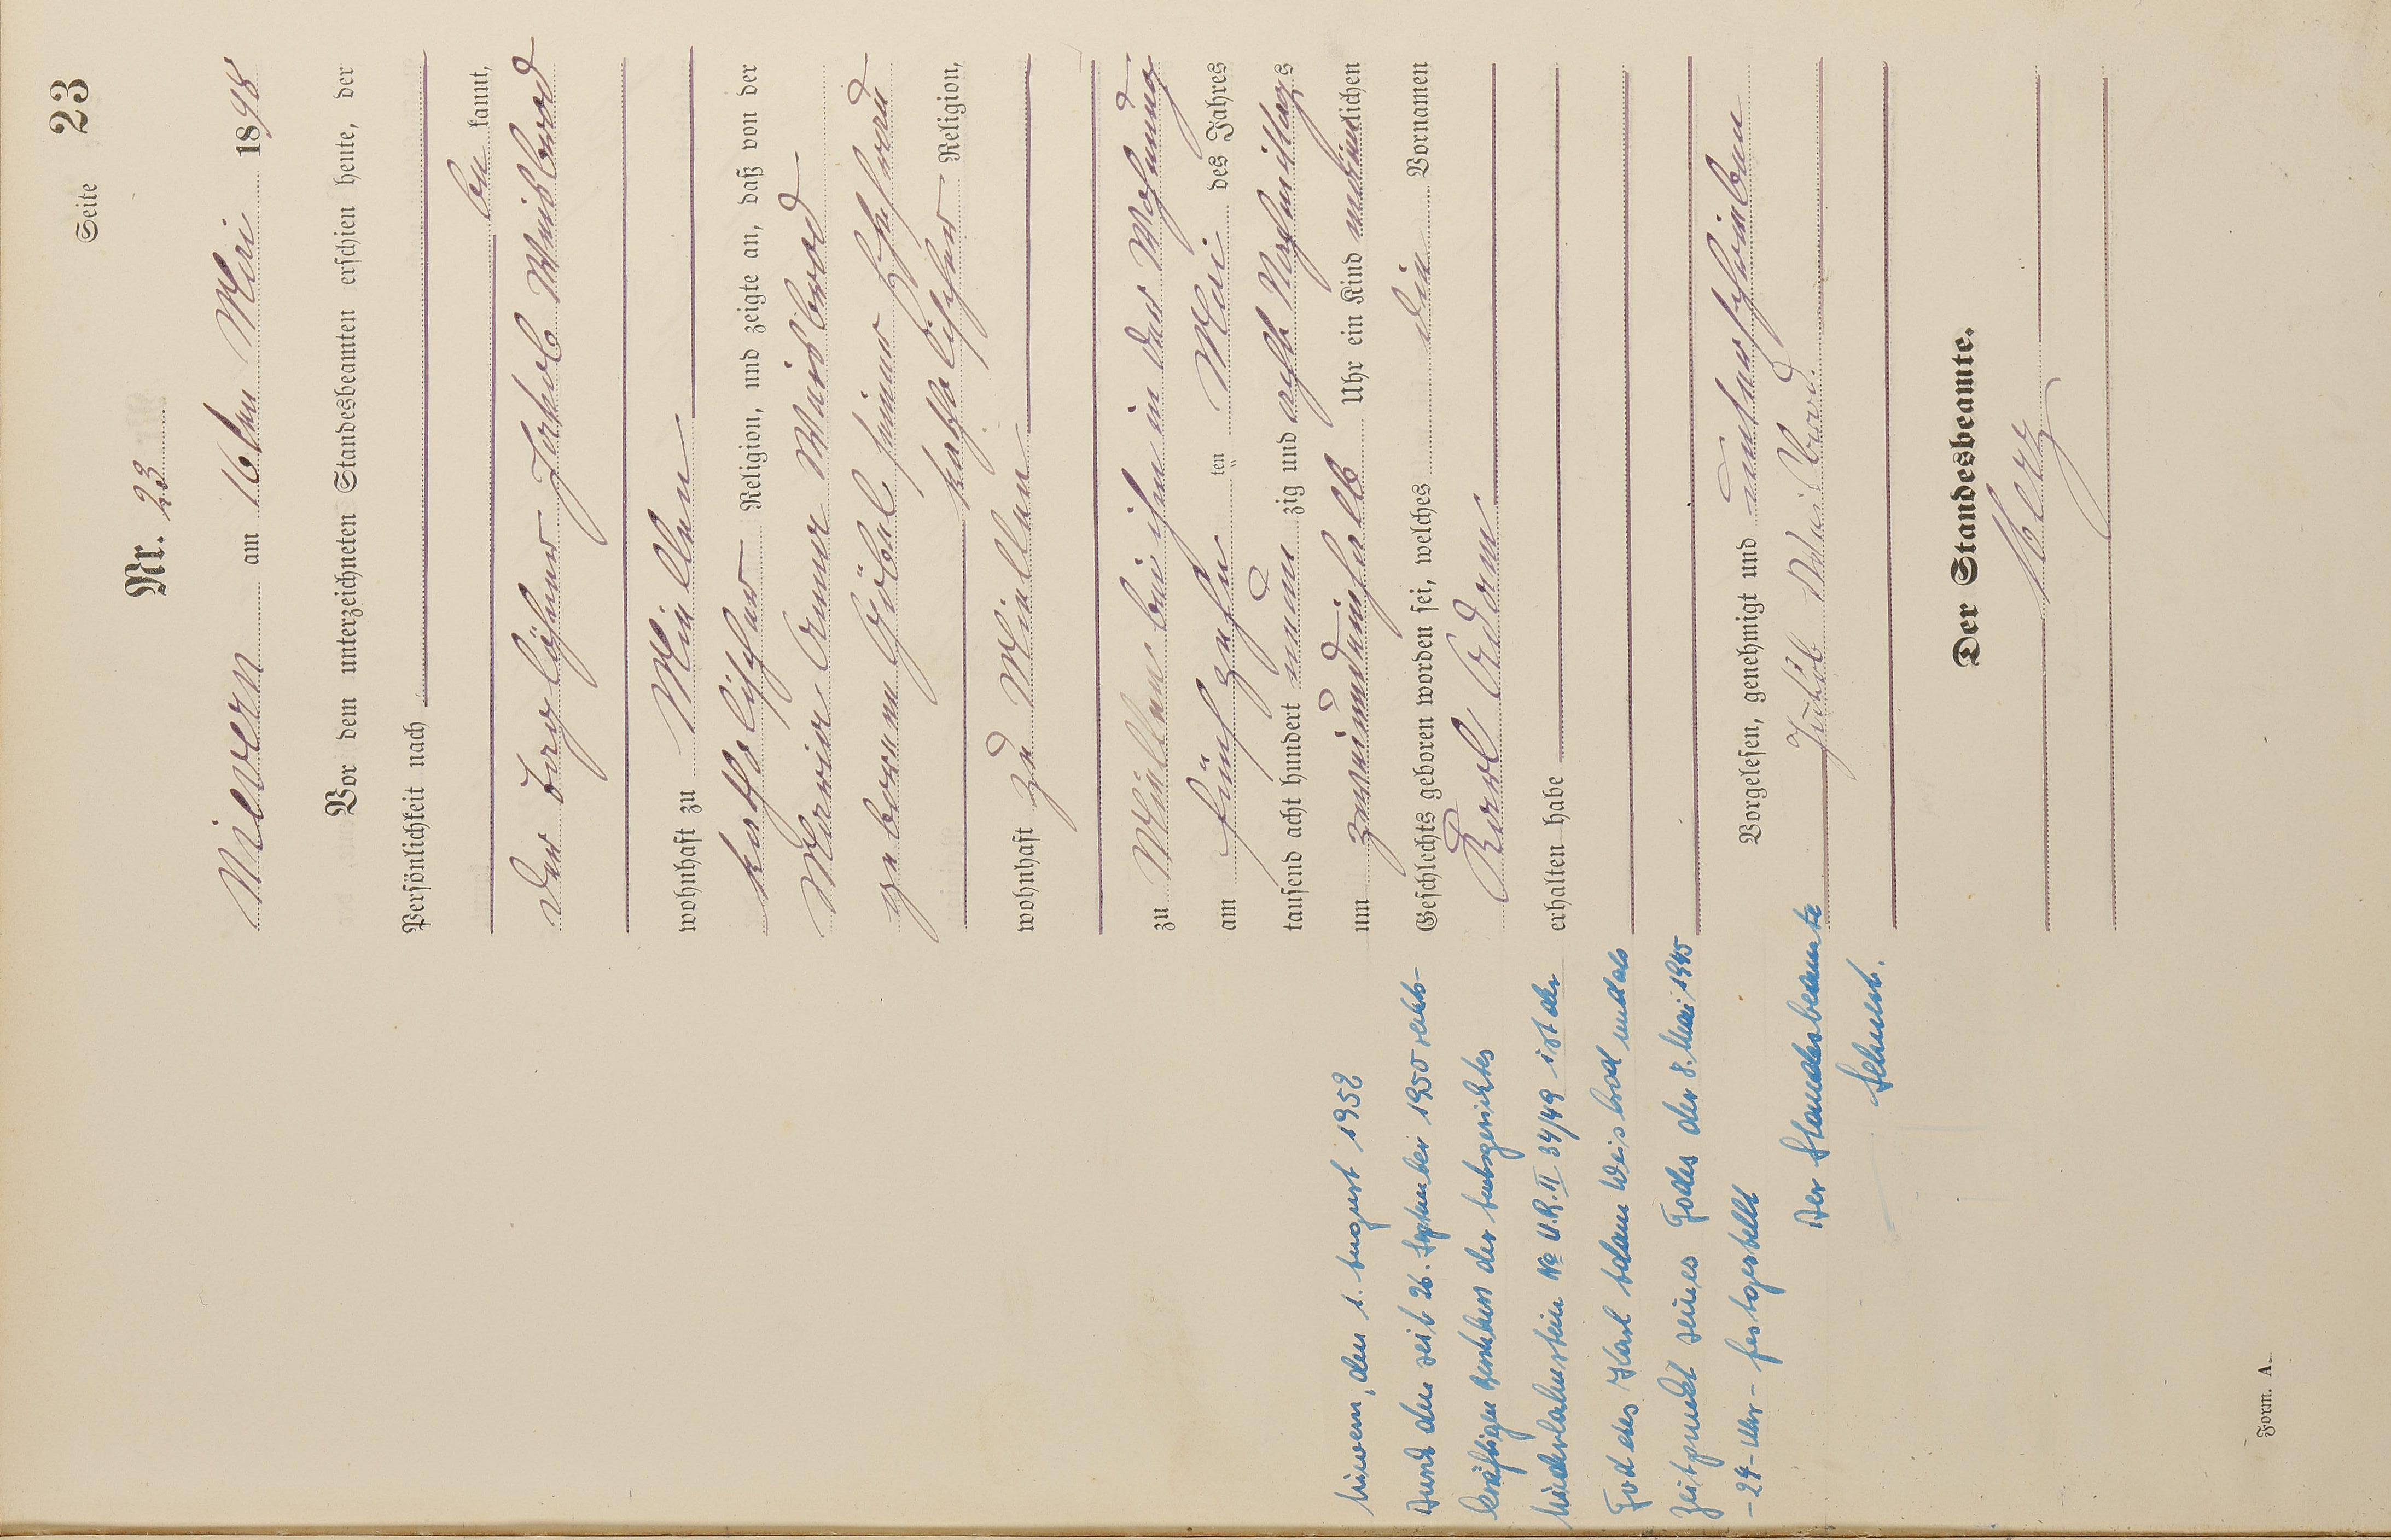 Seite 23
Nr. 23
Nievern am 16ten Mai 1898
Vor dem unterzeichneten Standesbeamten erschien heute, der
Persönlichkeit nach
be kannt,
der Taglöhner Jakob Weisbrod
wohnhaft zu Miellen
katholischer Religion, und zeigte an, daß von der
Maria Anna Weisbrod
geborene Göbel seiner Ehefrau
katholischer Religion,
wohnhaft zu Miellen
zu Miellen bei ihm in der Wohnung
am fünfzehn ten Mai des Jahres
tausend acht hundert neun zig und acht Nachmittags
um zweieinhalb Uhr ein Kind männlichen
Geschlechts geboren worden sei, welches die Vornamen
Karl Adam
erhalten habe
Vorgelesen, genehmigt und unterschrieben
Jakob Weisbrod.
Der Standesbeamte.
Nievern, den 1. August 1952
Durch den seit 26. September 1950 rechts-
kräftigen Beschluss des Amtsgerichtes
Niederlahnstein No U.R.II 34/49 ist der
Tod des Karl Adam Weisbrod und als
Zeitpunkt seines Todes der 8. Mai 1945
- 24 - Uhr - festgestellt
Der Standesbeamte
Form. A.